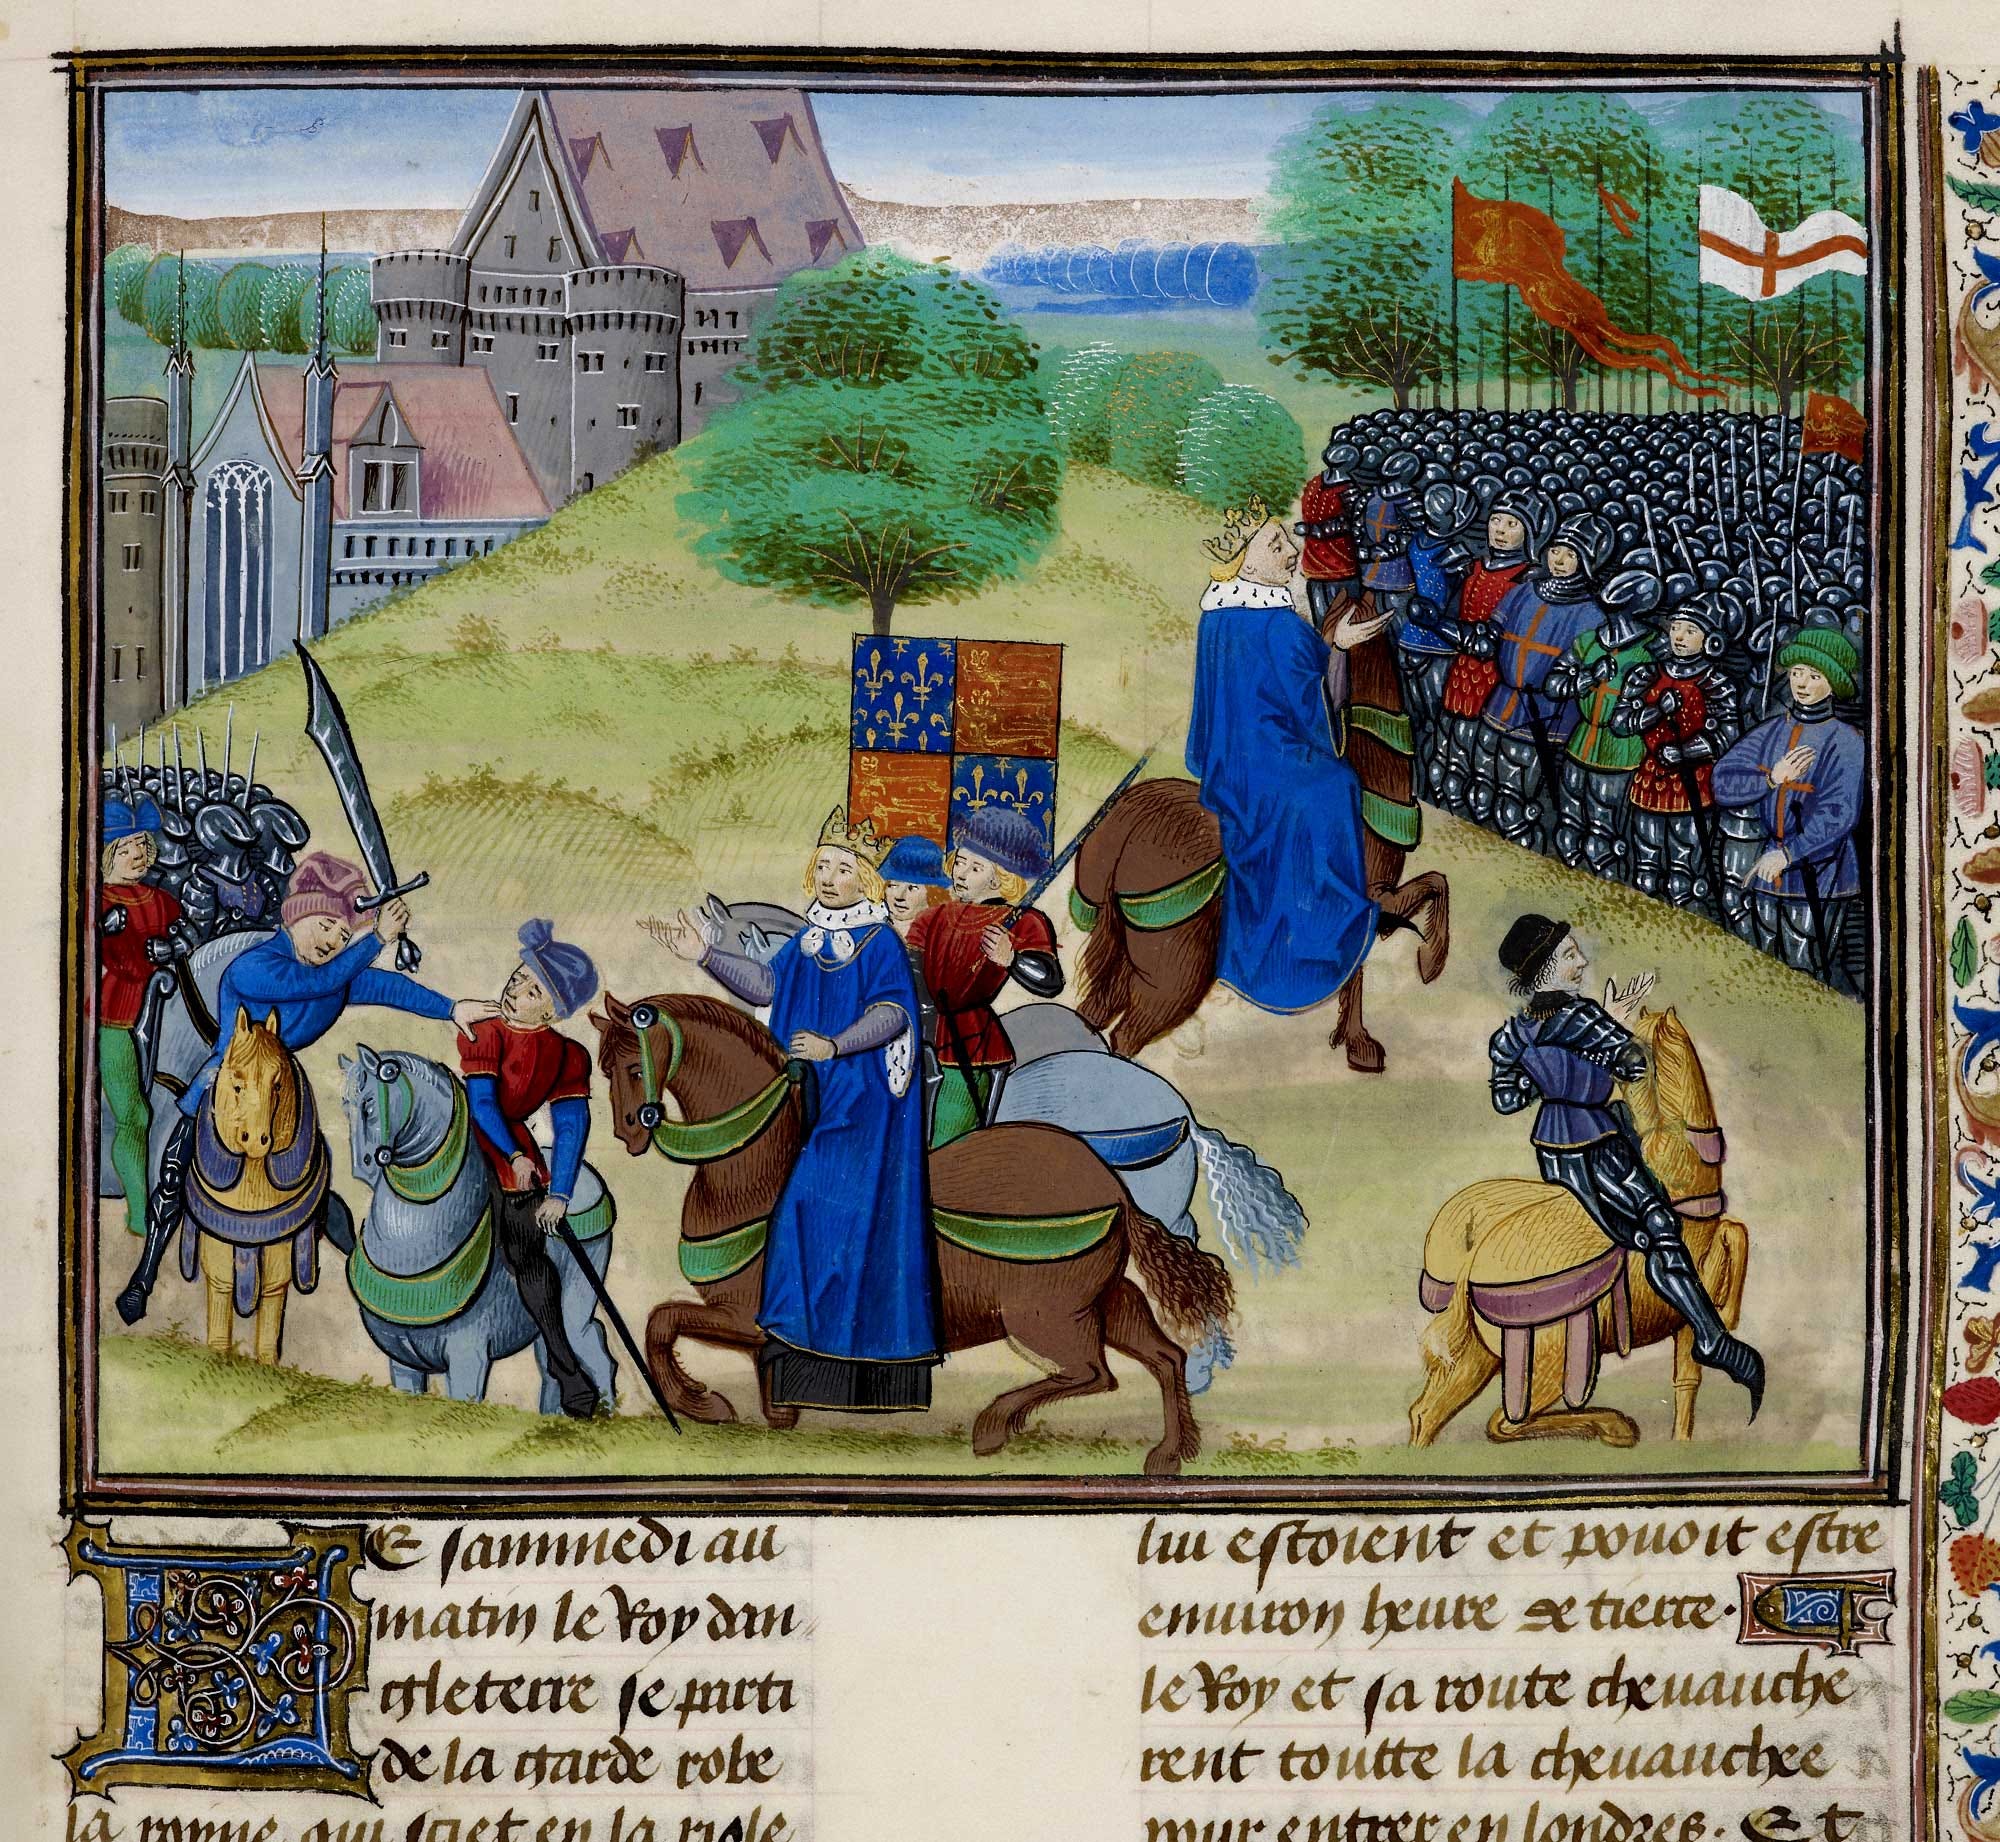 Le sammedi au
matin le Roy dan
gleterre se parti
de la garde robe
la royne qui sciet en la riole
lui estoient et pouoit estre
enuiron heure de tierce.
le Roy et sa route cheuauche
rent toutte la cheuauchee
pour entrer en londres. Et